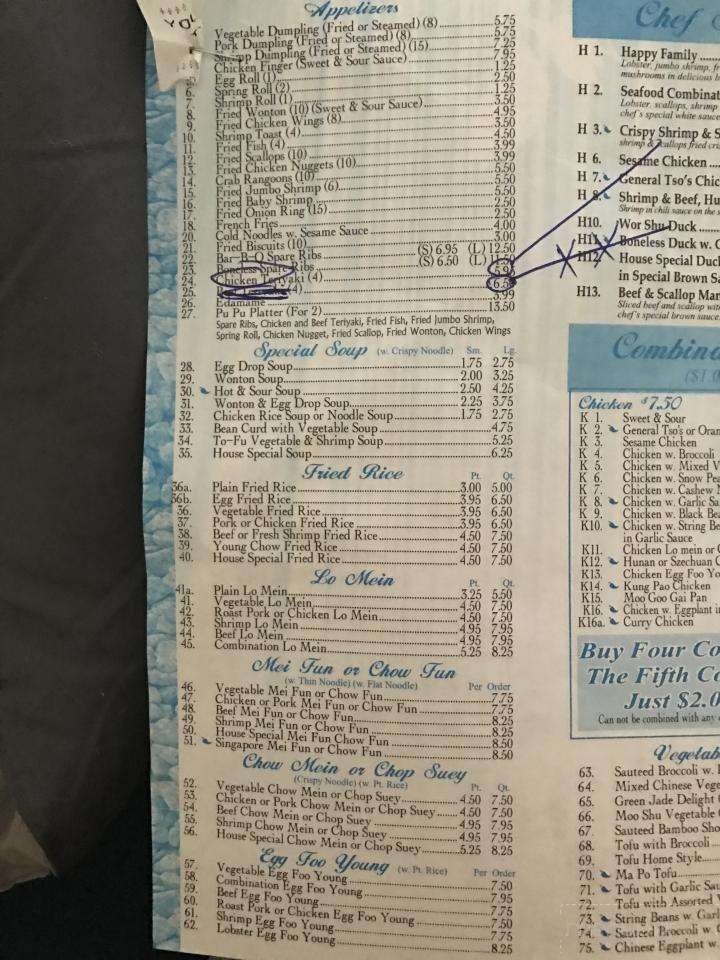 Appetizers
Vegetable Dumpling (Fried or Steamed) (8) 5.75
Pork Dumpling (Fried or Steamed) (8) 5.75
Shrimp Dumpling (Fried or Steamed) (15) 7.25
Chicken Finger (Sweet & Sour Sauce) 7.95
5. Egg Roll (1) 1.25
6. Spring Roll (2) 2.50
7. Shrimp Roll (1) 1.25
8. Fried Wonton (10) (Sweet & Sour Sauce) 3.50
9. Fried Chicken Wings (8) 4.95
10. Shrimp Toast (4) 3.50
11. Fried Fish (4) 4.50
12. Fried Scallops (10) 3.99
13. Fried Chicken Nuggets (10) 3.99
14. Crab Rangoons (10) 5.50
15. Fried Jumbo Shrimp (6) 5.50
16. Fried Baby Shrimp 5.50
17. Fried Onion Ring (15) 2.50
18. French Fries 2.50
20. Cold Noodles w. Sesame Sauce 4.00
21. Fried Biscuits (10) 3.00
22. Bar-B-Q Spare Ribs (S) 6.95 (L) 12.50
23. Boneless Spare Ribs (S) 6.50 (L)
24. Chicken Teriyaki (4) 5.95
25. (4) 6.50
26. Edamame 3.99
27. Pu Pu Platter (For 2) 13.50
Spare Ribs, Chicken and Beef Teriyaki, Fried Fish, Fried Jumbo Shrimp,
Spring Roll, Chicken Nugget, Fried Scallop, Fried Wonton, Chicken Wings
Special Soup (w. Crispy Noodle) Sm. Lg.
28. Egg Drop Soup 1.75 2.75
29. Wonton Soup 2.00 3.25
30. Hot & Sour Soup 2.50 4.25
31. Wonton & Egg Drop Soup 2.25 3.75
32. Chicken Rice Soup or Noodle Soup 1.75 2.75
33. Bean Curd with Vegetable Soup 4.75
34. To-Fu Vegetable & Shrimp Soup 5.25
35. House Special Soup 6.25
Fried Rice Pt. Qt.
36a. Plain Fried Rice 3.00 5.00
36b. Egg Fried Rice 3.95 6.50
36. Vegetable Fried Rice 3.95 6.50
37. Pork or Chicken Fried Rice 3.95 6.50
38. Beef or Fresh Shrimp Fried Rice 4.50 7.50
39. Young Chow Fried Rice 4.50 7.50
40. House Special Fried Rice 4.50 7.50
Lo Mein Pt. Qt.
41a. Plain Lo Mein 3.25 5.50
41. Vegetable Lo Mein 4.50 7.50
42. Roast Pork or Chicken Lo Mein 4.50 7.50
43. Shrimp Lo Mein 4.95 7.95
44. Beef Lo Mein 4.95 7.95
45. Combination Lo Mein 5.25 8.25
Mei Fun or Chow Fun
(w Thin Noodle) (w. Flat Noodle) Per Order
46. Vegetable Mei Fun or Chow Fun 7.75
47. Chicken or Pork Mei Fun or Chow Fun 7.75
48. Beef Mei Fun or Chow Fun 8.25
49. Shrimp Mei Fun or Chow Fun 8.25
50. House Special Mei Fun Chow Fun 8.50
51. Singapore Mei Fun or Chow Fun 8.50
Chow Mein or Chop Suey
(Crispy Noodle) (w. Pt. Rice) Pt. Qt.
52. Vegetable Chow Mein or Chop Suey 4.50 7.50
53. Chicken or Pork Chow Mein or Chop Suey 4.50 7.50
54. Beef Chow Mein or Chop Suey 4.95 7.95
55. Shrimp Chow Mein or Chop Suey 4.95 7.95
56. House Special Chow Mein or Chop Suey 5.25 8.25
Egg Foo Young (w. Pt. Rice) Per Order
57. Vegetable Egg Foo Young 7.50
58. Combination Egg Foo Young 7.95
59. Beef Egg Foo Young 7.75
60. Roast Pork or Chicken Egg Foo Young 7.50
61. Shrimp Egg Foo Young 7.75
62. Lobster Egg Foo Young 8.25
Chef
H 1. Happy Family
Lobster, jumbo shrimp,
mushrooms in delicious
H 2. Seafood
Lobster, scallops, shrimp
chef's special white sauce
H 3. Crispy Shrimp &
shrimp & scallops fried
H 6. Sesame Chicken
H 7. General Tso's
H 8. Shrimp & Beef,
Shrimp in chili sauce on the
H10. Wor Shu Duck
H11. Boneless Duck w.
H12. House Special
in Special Brown
H13. Beef & Scallop
Sliced beef and scallop
chef's special brown sauce
Chicken $7.50
K 1. Sweet & Sour
K 2. General Tso's or
K 3. Sesame Chicken
K 4. Chicken w. Broccoli
K 5. Chicken w. Mixed
K 6. Chicken w. Snow
K 7. Chicken w. Cashew
K 8. Chicken w. Garlic
K 9. Chicken w. Black
K10. Chicken w. String
in Garlic Sauce
K11. Chicken Lo mein or
K12. Hunan or Szechuan
K13. Chicken Egg Foo
K14. Kung Pao Chicken
K15. Moo Goo Gai Pan
K16. Chicken w. Eggplant
K16a. Curry Chicken
Buy Four
The Fifth
Just
Can not be combined with any
63. Sauteed Broccoli w.
64. Mixed Chinese
65. Green Jade Delight
66. Moo Shu Vegetable
67. Sauteed Bamboo
68. Tofu with Broccoli
69. Tofu Home Style
70. Ma Po Tofu
71. Tofu with Garlic
72. Tofu with Assorted
73. String Beans w.
74. Sauteed Broccoli w.
75. Chinese Eggplant w.